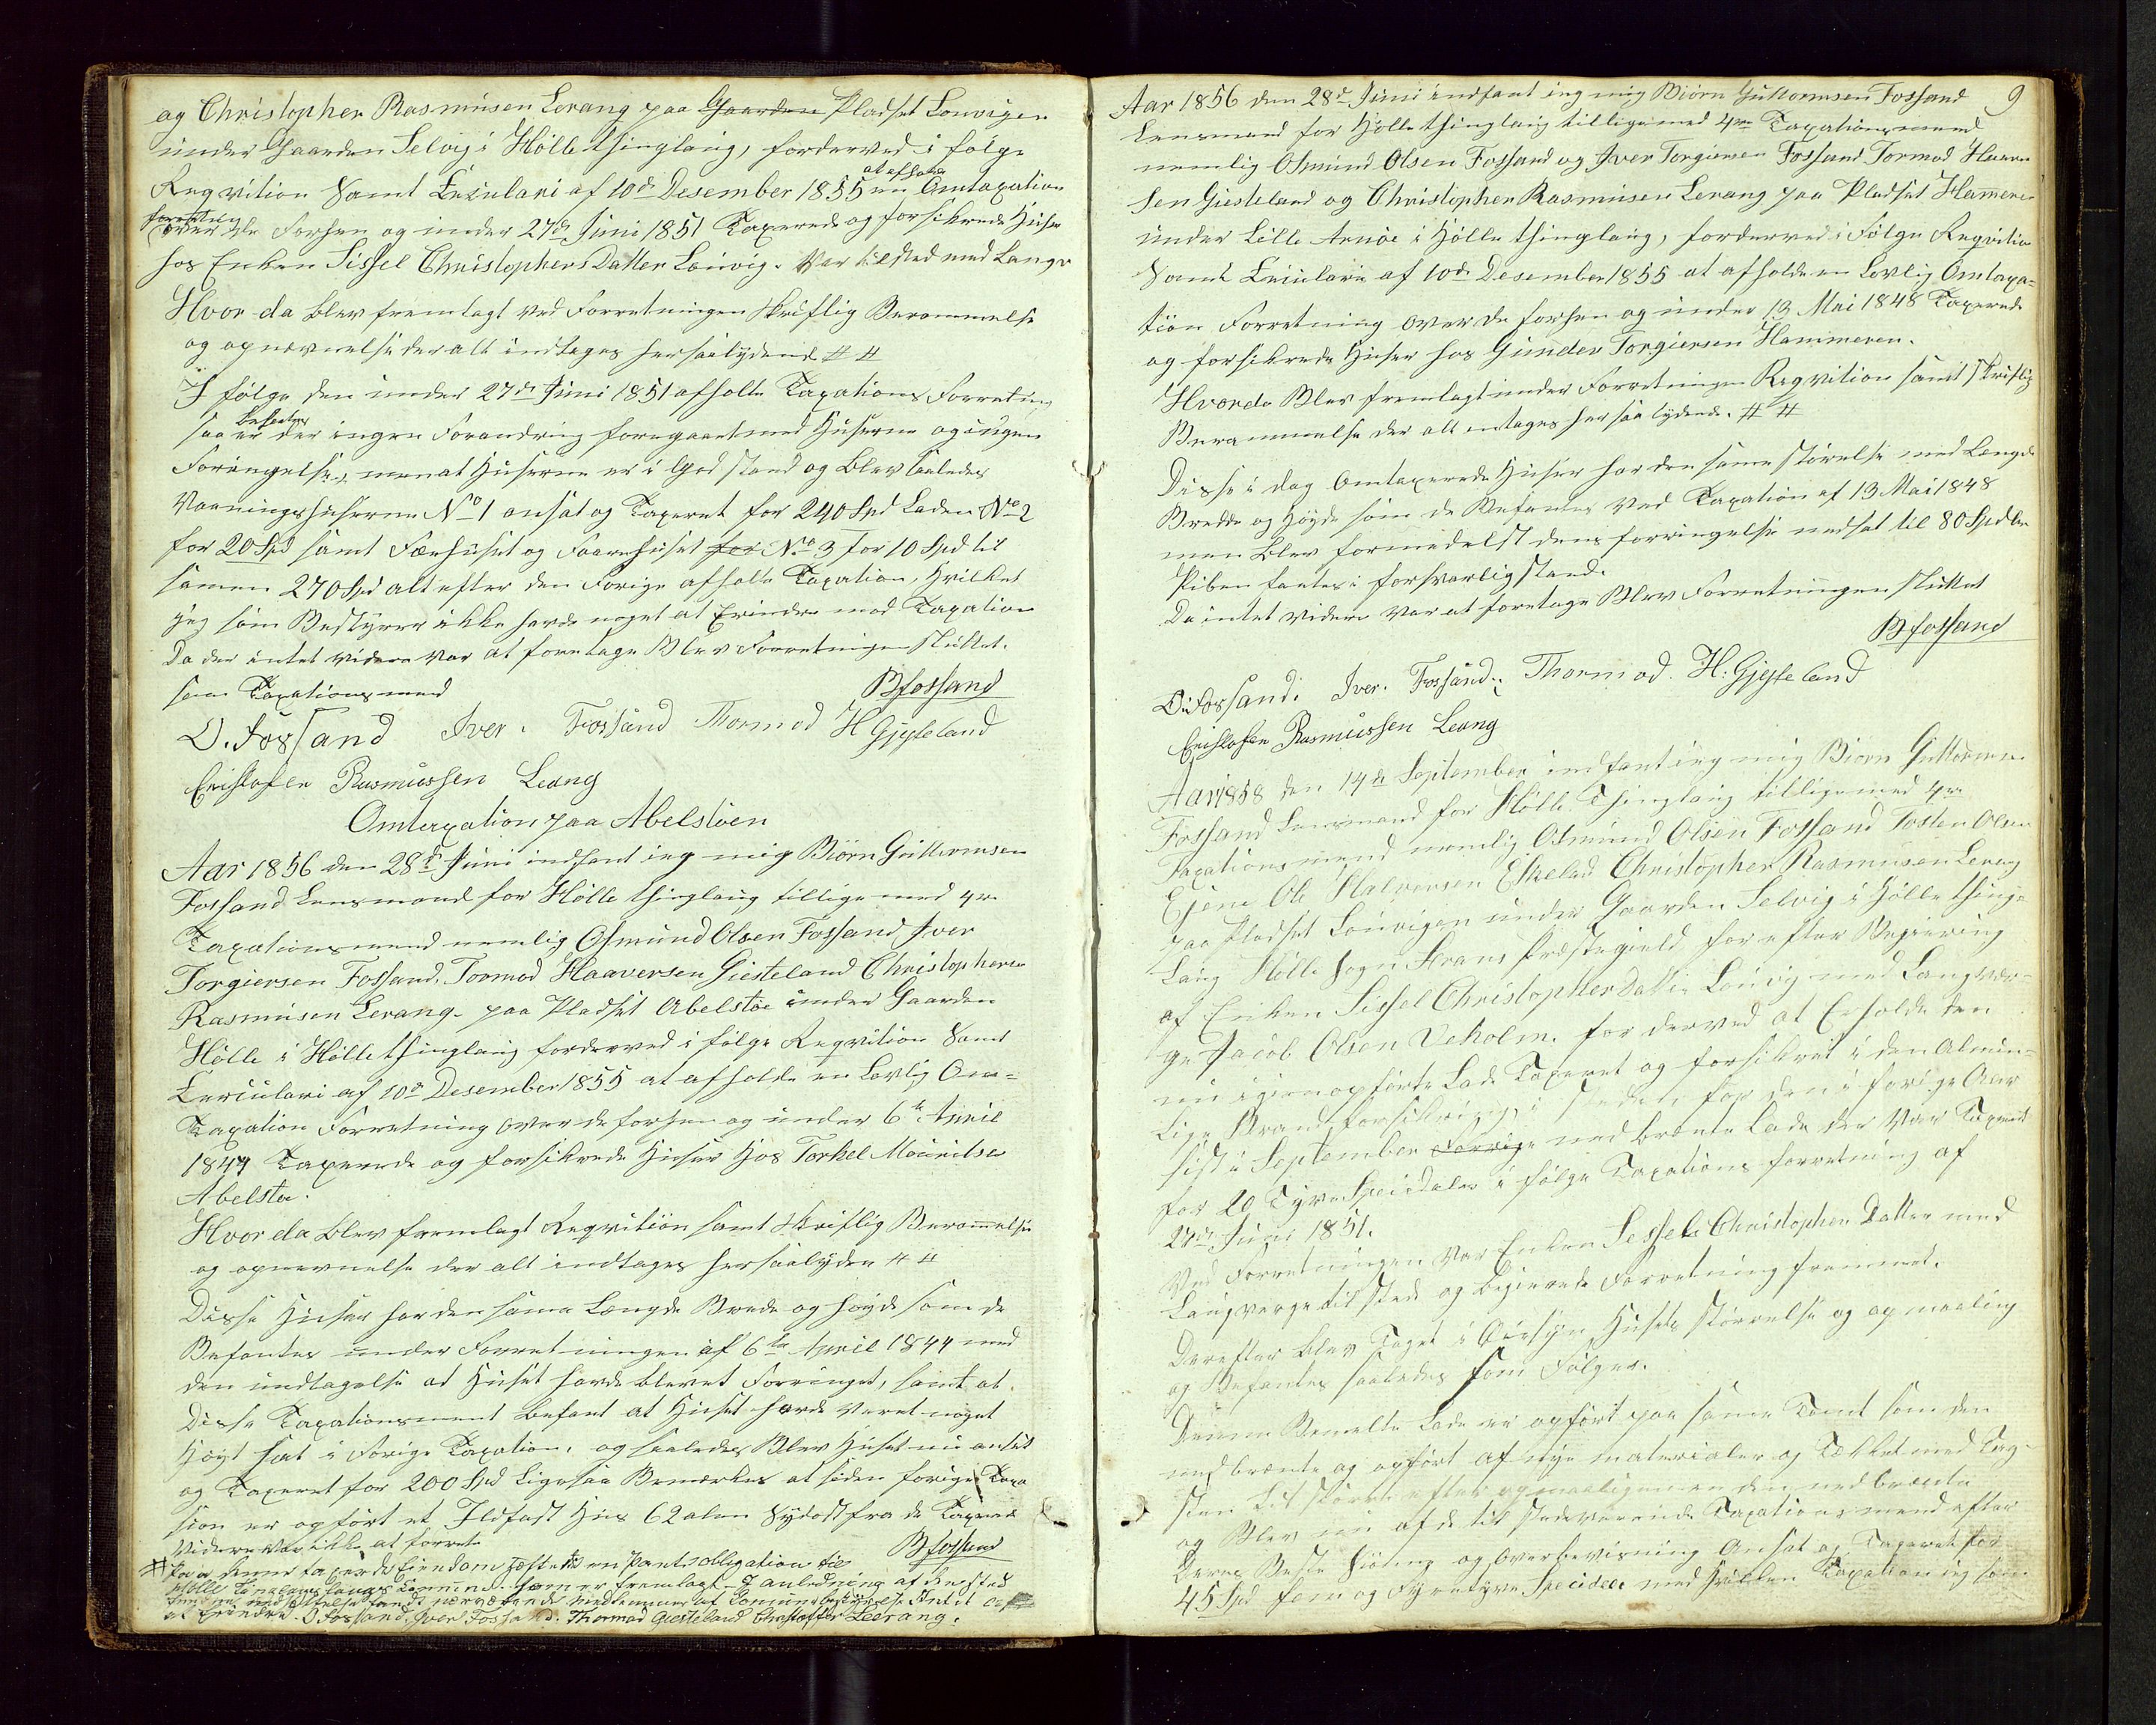 og Christopher Rasmusen Lerang paa Gaarden Pladset Lonvigen
under Gaarden Selvig i Hölle thinglaug, forderved i følge
Reqvition Samt Circulari af 10de Desember 1855 at afholde en Omtaxation
forretning over de forhen og under 27de Juni 1851 Taxerede og forsikrede Huse
hos Enken Sissel Christophers Datter Lonvig. Var tilsted med Laugv
Hvor da blev fremlagt ved Forretningen Skriftlig Berammelse
og opnevnelse der alt indtages hersaalydende # #
I følge den under 27de Juni 1851 afholte Taxations Forretning
saa befantes er der ingen Forandring foregaaet med Huserne og ingen
Foringelse, men at Huserne er i God stand og blev saaledes
Vaaningshuserne No 1 ansat og Taxeret for 240 Spd Laden No 2
for 20 Spd samt Fæhuset og Faarehuset for No 3 for 10 Spd til
samen 270 Spd alt efter den Forige afholte Taxation, hvilket
jeg som Bestyrer ikke havde noget at Erindre mod Taxation
Da der intet videre var at foretage Blev Forretningen sluttet.
som Taxationsmend BFossand
O. Fossand Iver. Fossand Thormod H Gjesteland
Cristofer Rasmussen Leang
Omtaxation paa Abelstöen
Aar 1856 den 28de Juni indfant ieg mig Biörn Guttormsen
Fossand Lensmand for Hölle thinglaug tillige med 4re
Taxationsmend nemlig Osmund Olsen Fossand, Iver
Torgiersen Fossand, Tormod Haaversen Giesteland Christopher
Rasmusen Lerang. paa Pladset Abelstöe under Gaarden
Hölle i Hölle thinglaug forderved i følge Reqvition Samt
Circulari af 10de Desember 1855 at afholde en Lovlig Om-
Taxation Forretning over de forhen og under 6te April
1844 Taxerede og forsikrede Huser hos Torkel Mouritsen
Abelstø.
Hvor da blev fremlagt Reqvition samt Skriftlig Berammelse
og opnevnelse der alt indtages hersaalyden # #
Disse Huser har den samme Længde Brede og høyde som de
Befantes under Forretningen af 6te April 1844 med
den undtagelse at Huset havde blevet Forringet, samt at
Disse Taxationsment befant at Huset havde Været noget
høyt sat i Forige Taxation, og saaledes Blev Huset nu ansat
og Taxeret for 200 Spd Ligesaa Bemerkes at siden forige Taxa
sion er opført et Ildfast Hus 62 alen Sydost fra de Taxerede
Videre var ikke at forrette BFossand
# Paa denne taxerede Eiendom heftede en Pantobligation til
Hölle Formand. som er fremlagt I anledning af
at Erindre. O Fossand, Iver Fossand. Thormod Giesteland Christoffer Leerang.
9
Aar 1856 den 28de Juni indfant ieg mig Biörn Guttormsen Fossand
Lensmand for Hölle thinglaug tilligemed 4re Taxationsmend
nemlig Osmund Olsen Fossand og Iver Torgiersen Fossand Tormod Haaver
sen Giesteland og Christopher Rasmusen Lerang paa Pladset Hameren
under Lille Arnöe i Hölle thinglaug, forderved i Følge Reqvition
Samt Circulari af 10de Desember 1855 at afholde en Lovlig Omtaxa-
tion Forretning over de forhen og under 13 Mai 1848 Taxerede
og forsikrede Huser hos Gunder Torgiersen Hammeren.
Hvorda Blev fremlagt under Forretningen Reqvition samt Skriftlig
Berammelse der alt intages hersaalydende. # #
Disse i dag Omtaxerede Huser har den samme størelse med Længde
Bredde og Høyde som de Befantes ved Taxation af 13 Mai 1848
men blev formedelst dens forringelse nedsat til 80 Spdler
Piben fantes i forsvarlig stand.
Da intet videre var at foretage Blev Forretningen sluttet
BFossand
O. Fossand. Iver. Fossand. Thormod. H. Gjesteland
Cristofer Rasmussen Leang
Aar 1858 den 14de September indfant ieg mig Biörn Guttormsen
Fossand Lensmand for Hölle Thinglaug tilligemed 4re
Taxationsmend nemlig Osmund Olsen Fossand Tosten Olsen
Eiene Ole Halvorsen Eskelad Christopher Rasmusen Lerang
paa Pladset Lonvigen under Gaarden Selvig i Hölle thing-
laug Hölle Sogn Strans Prestegield for efter Begiering
af Enken Sissel Christopher Datter Lonvig med Laugver-
ge Jacob Olsen Veholm. for derved at Erholde den
nu igienopførte Lade Taxeret og forsikret i den Almin-
lige Brandforsikring, i steden for den i forige Aar
sidst i September forrige nedbrente Lade der var Taxeret
for 20 Tyve Speciedaler i følge Taxations forretning af
27de Juni 1851.
Ved Forretningen var Enken Sessele Christopher Datter med
Laugverge tilsted og begierede Forretning fremmet.
Derefter blev Taget i Øiesyn Husets størrelse og opmaaling
og Befantes saaledes som Følger.
Denne Bemelte Lade er opført paa samme Tomt som den
nedbrente og opført af nye materialer og Tækket med Tag-
sten lit større efter opmaalingen en den nedbrente
og Blev nu af de tilstedeværende Taxationsmend efter
Deres Beste Skiøn og overbevisning Ansat og Taxeret for
45 Spd fem og Fyretyve Specidaler med hvilken Taxation ieg som